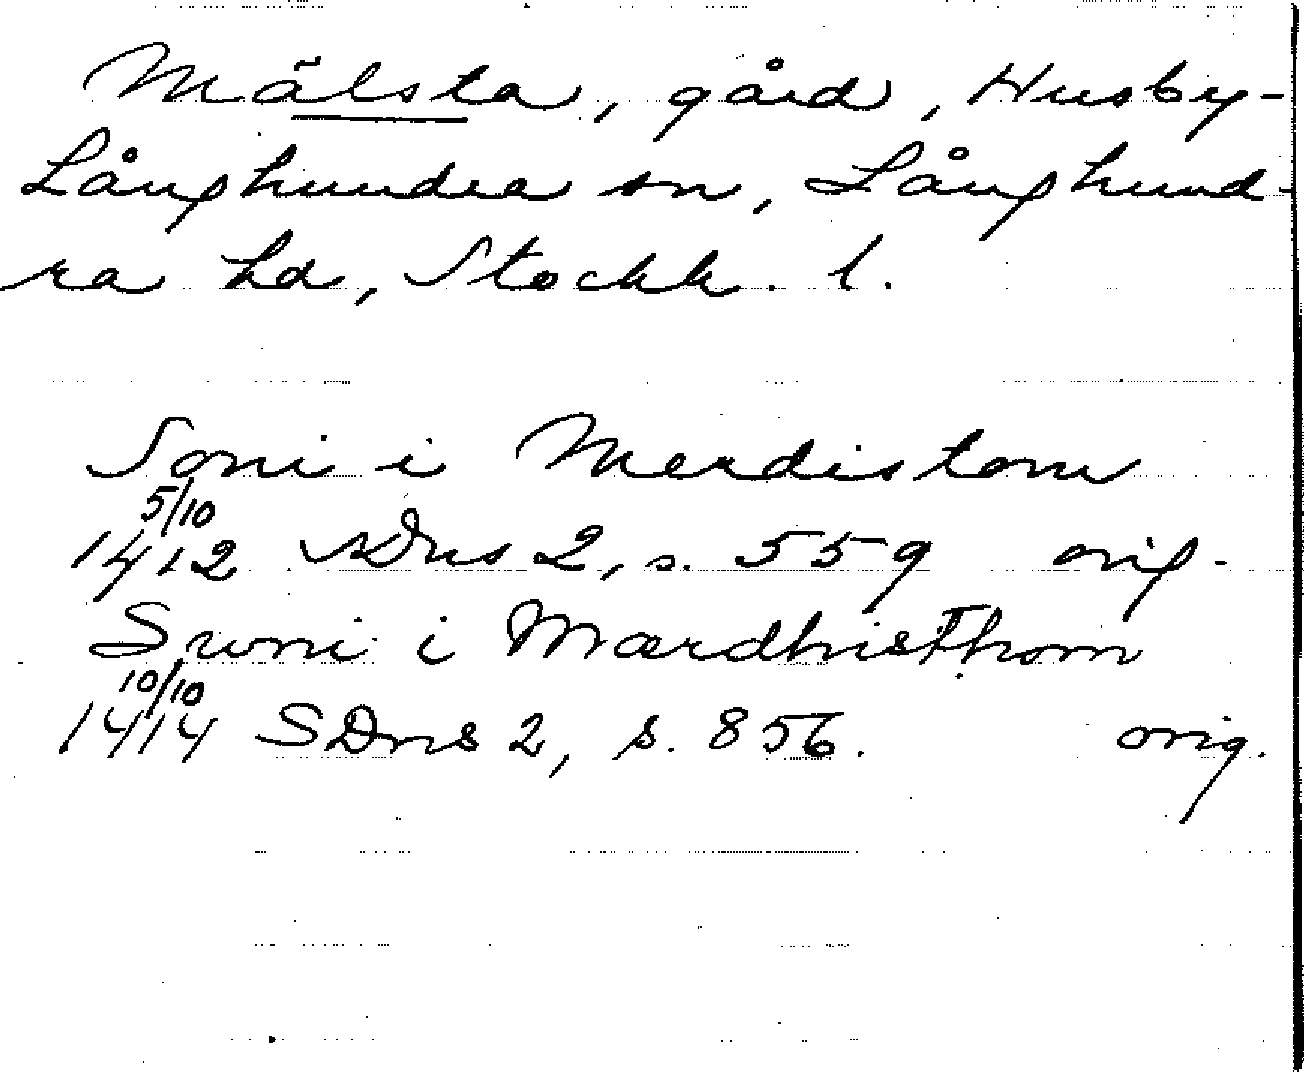 Mälsta, gård, Husby-
Långhundra sn, Långhund-
ra hd, Stockh. l.
Soni i Merdistom
5/10
1412 SDns 2, s. 559 orig.
Swni i MærdhisThom
10/10
1414 SDns 2, s. 856. orig.